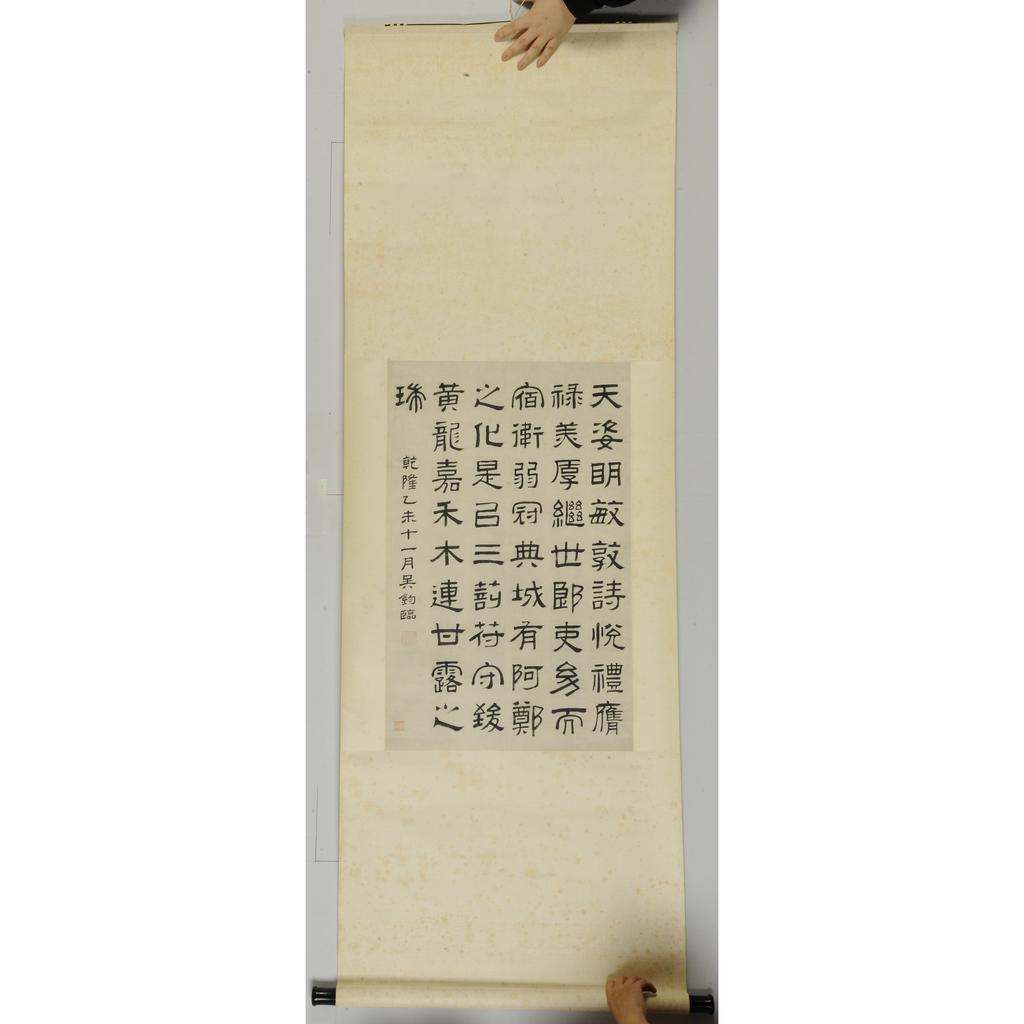 天姿眀敏敦詩悅禮膺
祿美厚繼世郎吏㓜而
宿衛弱冠典城有阿鄭
之化是㠯三莂符守致
黃龍嘉禾木連甘露之
瑞
乾隆乙未十一月吴鈞臨